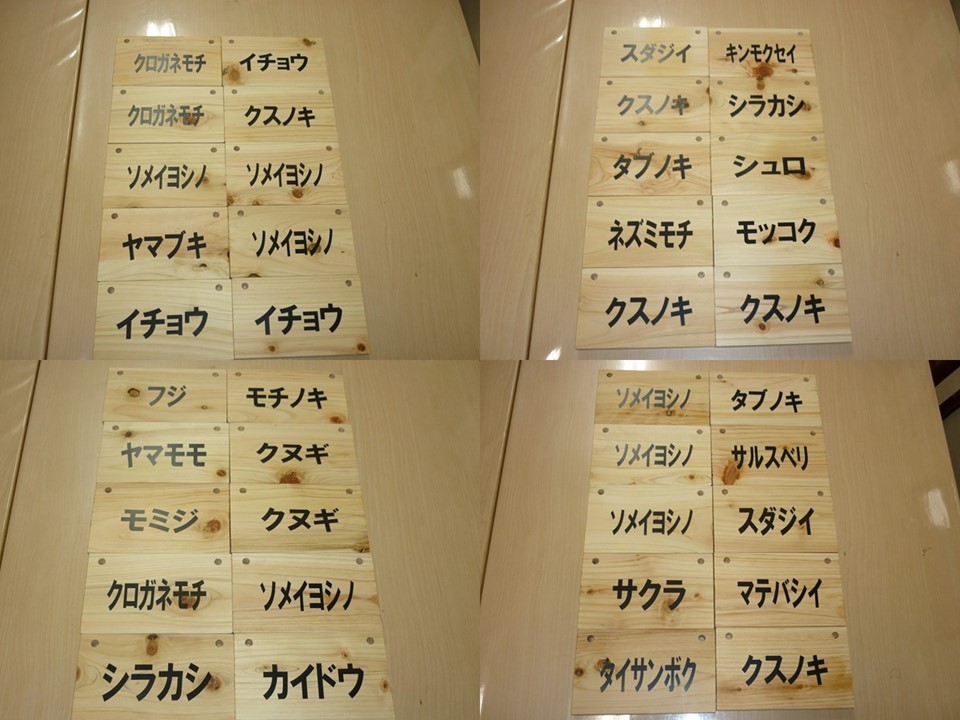 クロガネモチ イチョウ
クロガネモチ クスノキ
ソメイヨシノ ソメイヨシノ
ヤマブキ ソメイヨシノ
イチョウ イチョウ
スダジイ キンモクセイ
クスノキ シラカシ
タブノキ シュロ
ネズミモチ モッコク
クスノキ クスノキ
フジ モチノキ
ヤマモモ クヌギ
モミジ クヌギ
クロガネモチ ソメイヨシノ
シラカシ カイドウ
ソメイヨシノ タブノキ
ソメイヨシノ サルスベリ
ソメイヨシノ スダジイ
サクラ マテバシイ
タイサンボク クスノキ